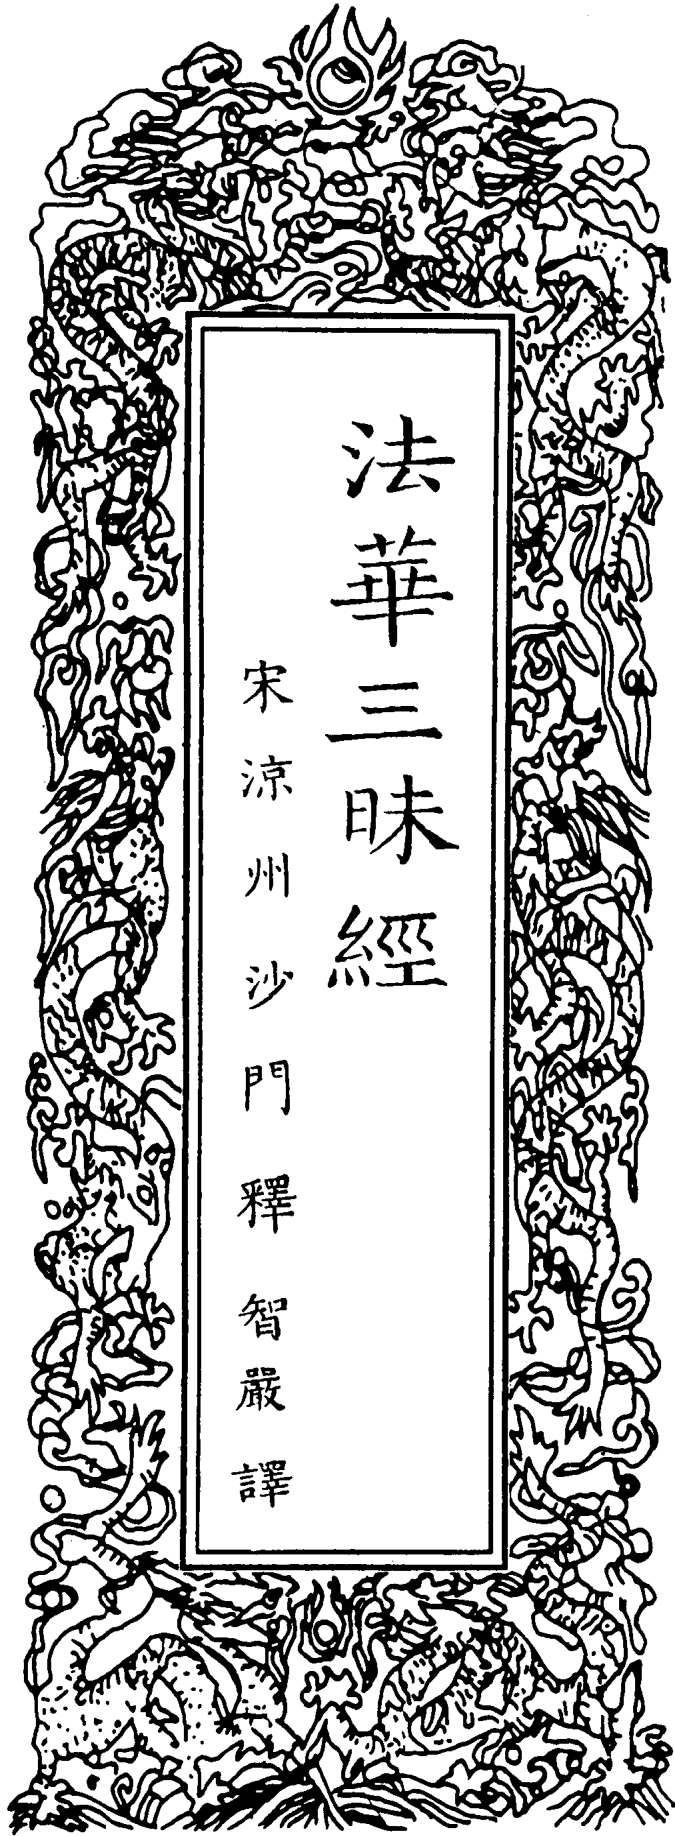 法華三昧經
宋涼州沙門釋智嚴譯